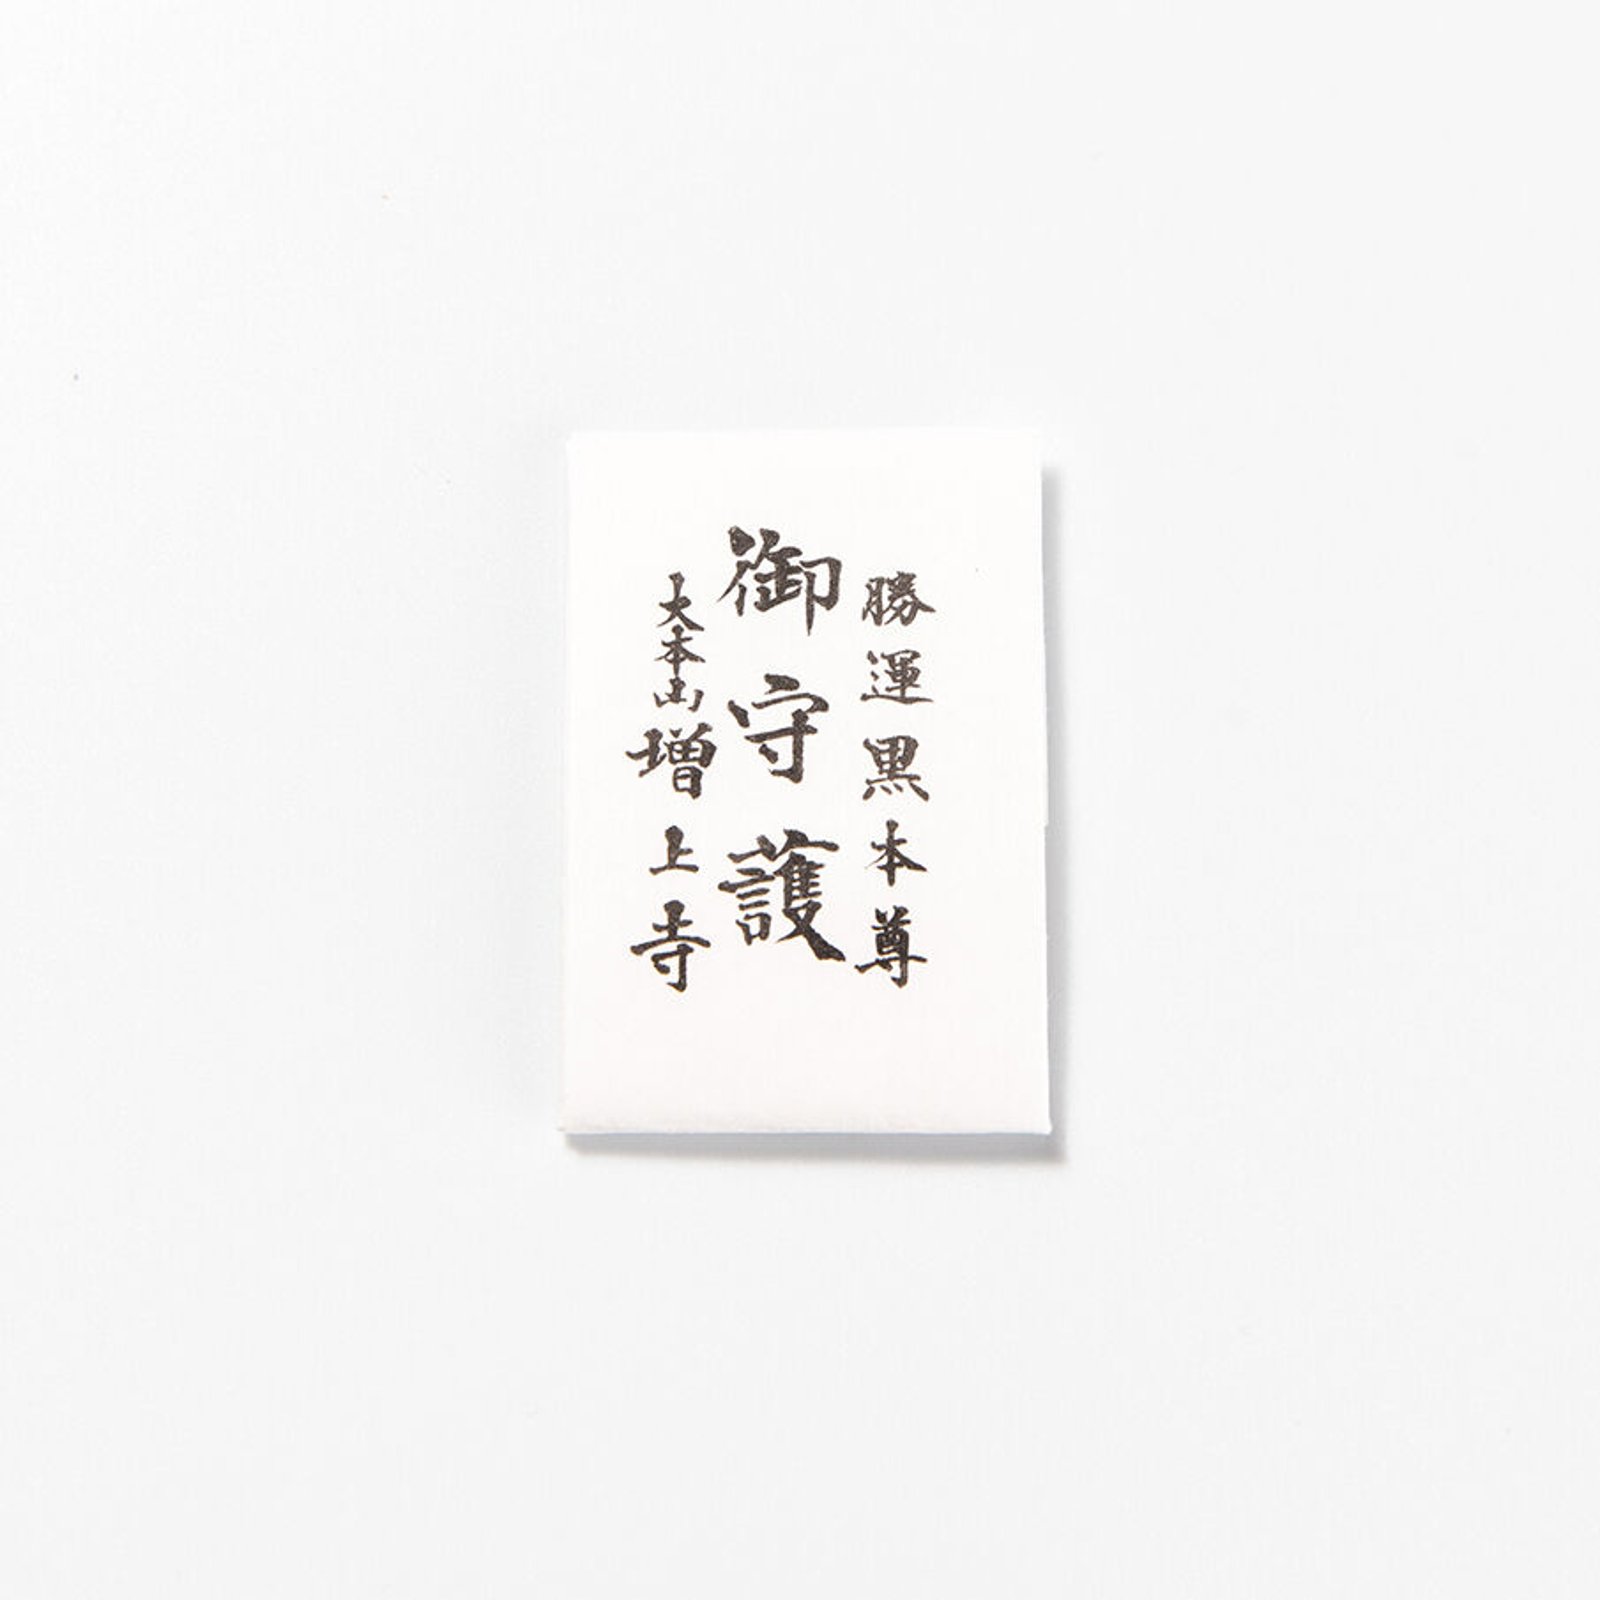 勝運黒本尊
御守護
大本山増上寺